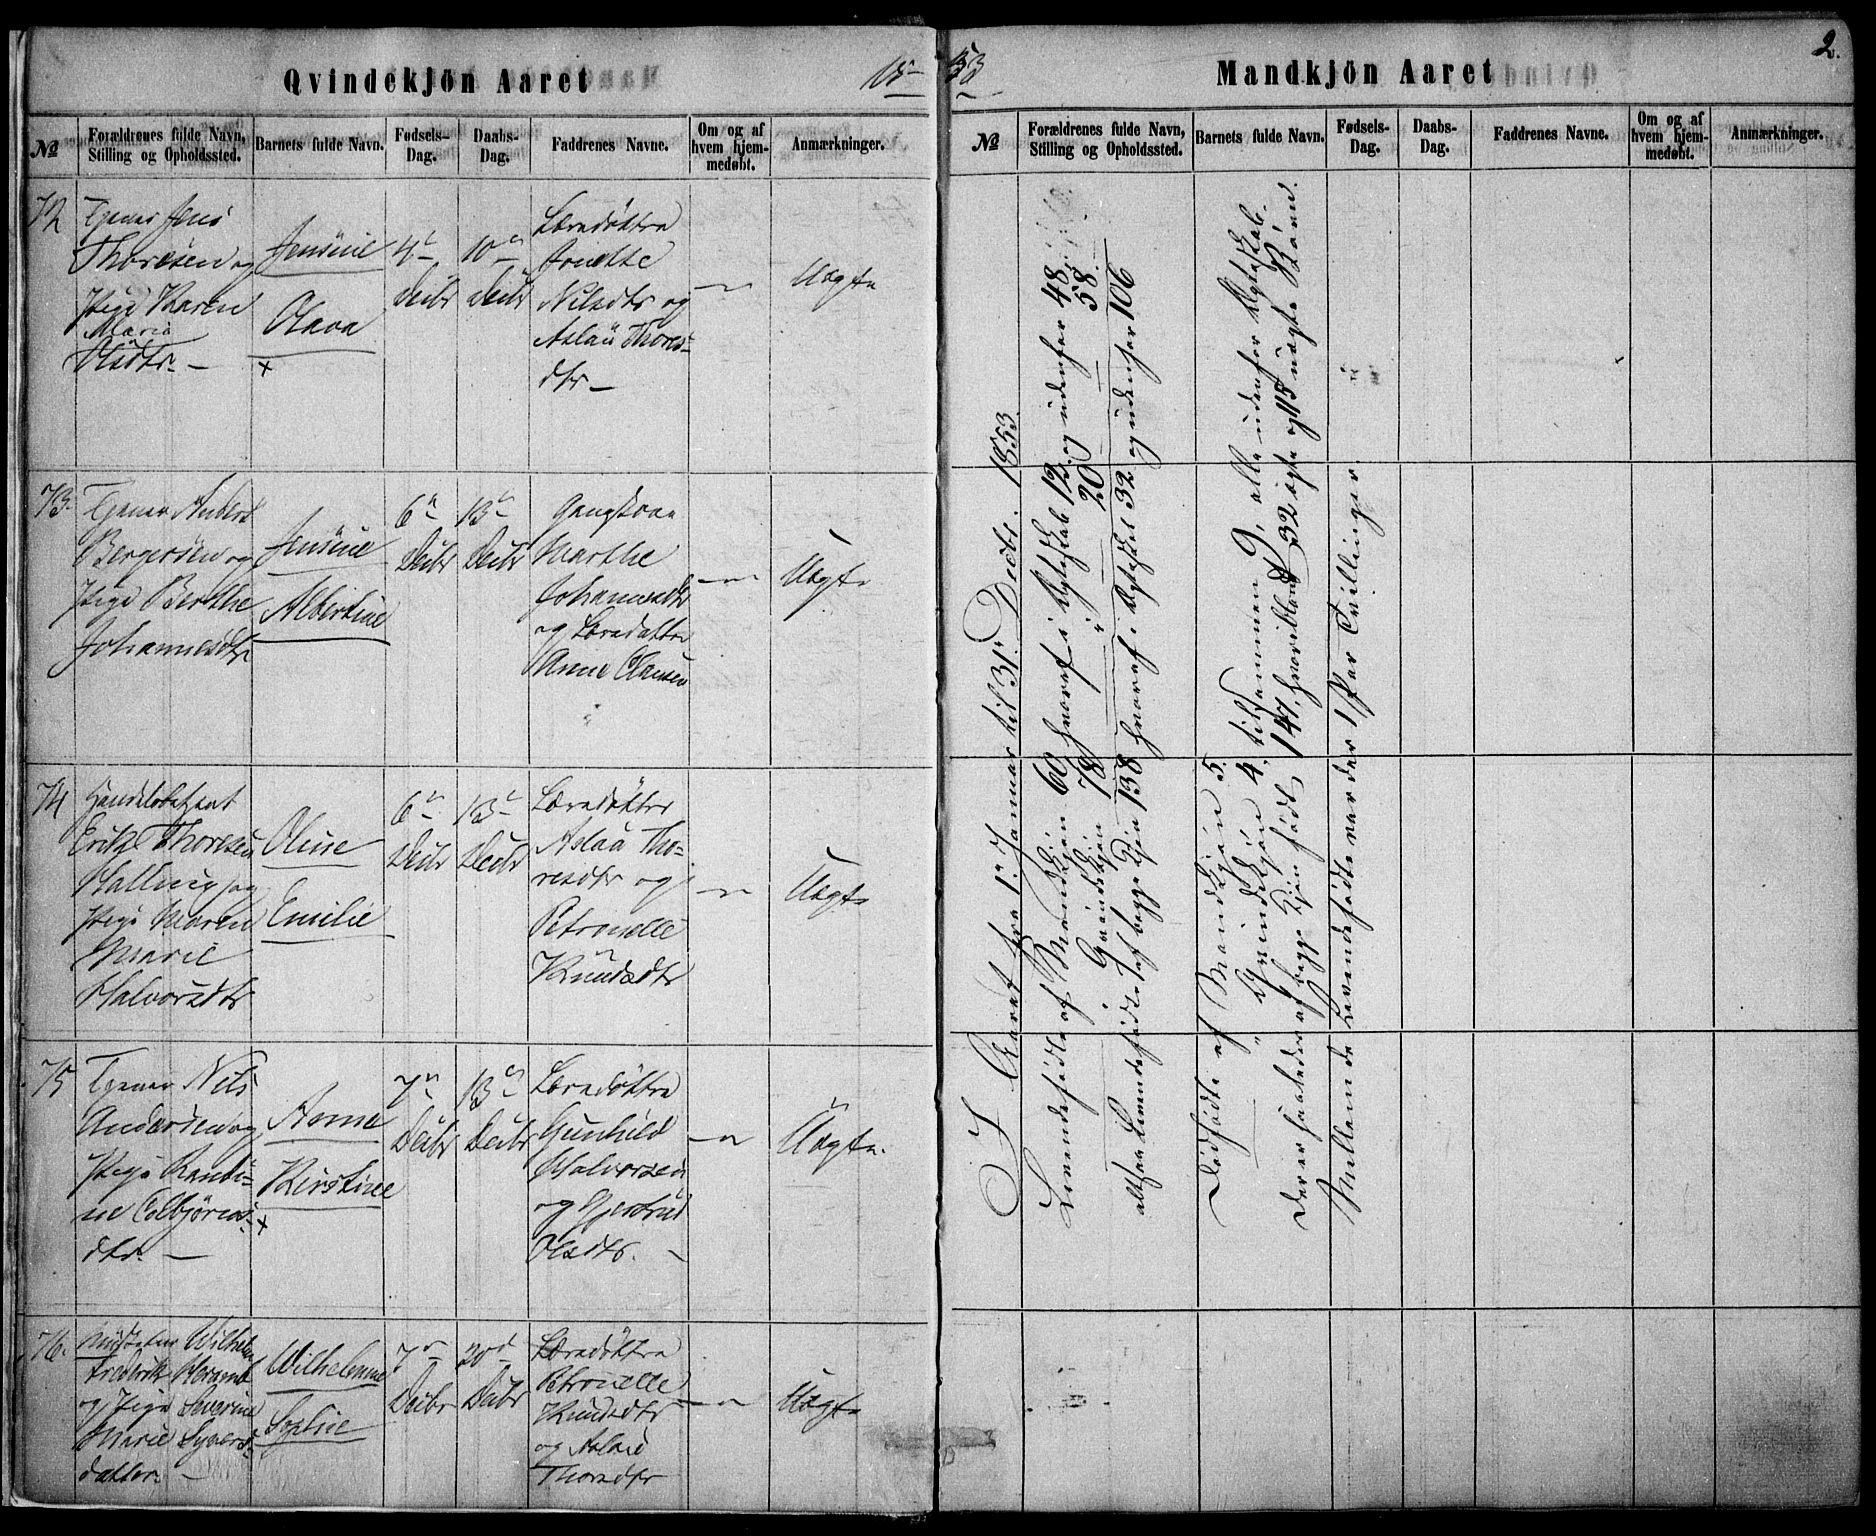 Qvindekjön Aaret
18
№
Forældrenes fulde Navn,
Stilling og Opholdssted.
Barnets fulde Navn.
Fødsels-
Dag.
Daabs-
Dag.
Faddrenes Navne.
Om og af
hvem hjem-
medøbt.
Anmærkninger.
72
Tjener Jens
Thoresen og
Pige Karen
Maria
Olsdtr. —
Jensine
Olava
×
4de
Decbr
10de
Decbr
Jonette
Nilsdtr og
Aslau Thores-
dtr —
— " —
Uægte
73.
Tjener
Bergersen og
Pige Berthe
Johannesdtr
Jensine
Albertine
6te
Decbr
13de
Decbr
Gangkone
Marthe
Johannesdtr
og
Anne Clausen
— " —
Uægte
74
Handelsbetjent
Erik Thoresen
Halling og
Pige Maren
Marie
Halvorsdtr
Oline
Emilie
6te
Decbr
13de
Decbr
Aslau Tho-
resdtr og
Petronelle
Knudsdtr
— " —
Uægte
75
Tjener Nils
Andersen og
Pige Randi-
ne Colbjørns-
dtr. —
Anna
Kirstine
×
7de
Decbr
13de
Decbr
Gunhild
Halvorsen
og Gjertrud
Olsdtr. —
— " —
Uægte.
76.
Wilhelm
Frederik
og Pige Severine
Marie Syvers-
datter. —
Wilhelmine
Sophie
7de
Decbr
20de
Decbr
Petronelle
Knudsdtr
og Aslau
Thoresdtr
— " —
Uægte
53
Mandkjön Aaret
2.
№
Forældrenes fulde Navn,
Stilling og Opholdssted.
Barnets fulde Navn.
Fødsels-
Dag.
Daabs-
Dag.
Faddrenes Navne.
Om og af
hvem hjem-
medøbt.
Anmærkninger.
I Aaret fra 1ste Januar til 31te Decbr. 1853.
Levendefødte af Mandkjön 60 hvoraf i Ægteskab 12 og udenfor 48
" Qvindekjön 78 — " — 20 — " — 58.
altsaa Levendefødte af begge Kjön 138 hvoraf i Ægteskab 32 og udenfor 106
Dødfødte af Mandkjön 5.
— " — Qvindekjön 4, tilsammen 9, alle udenfor Ægteskab.
Der er saaledes af begge Kjön født 147, hvoriblandt 32 ægte og 115 uægte Börn.
Mellem de Levendefødte var der 1 Par Tvillinger.